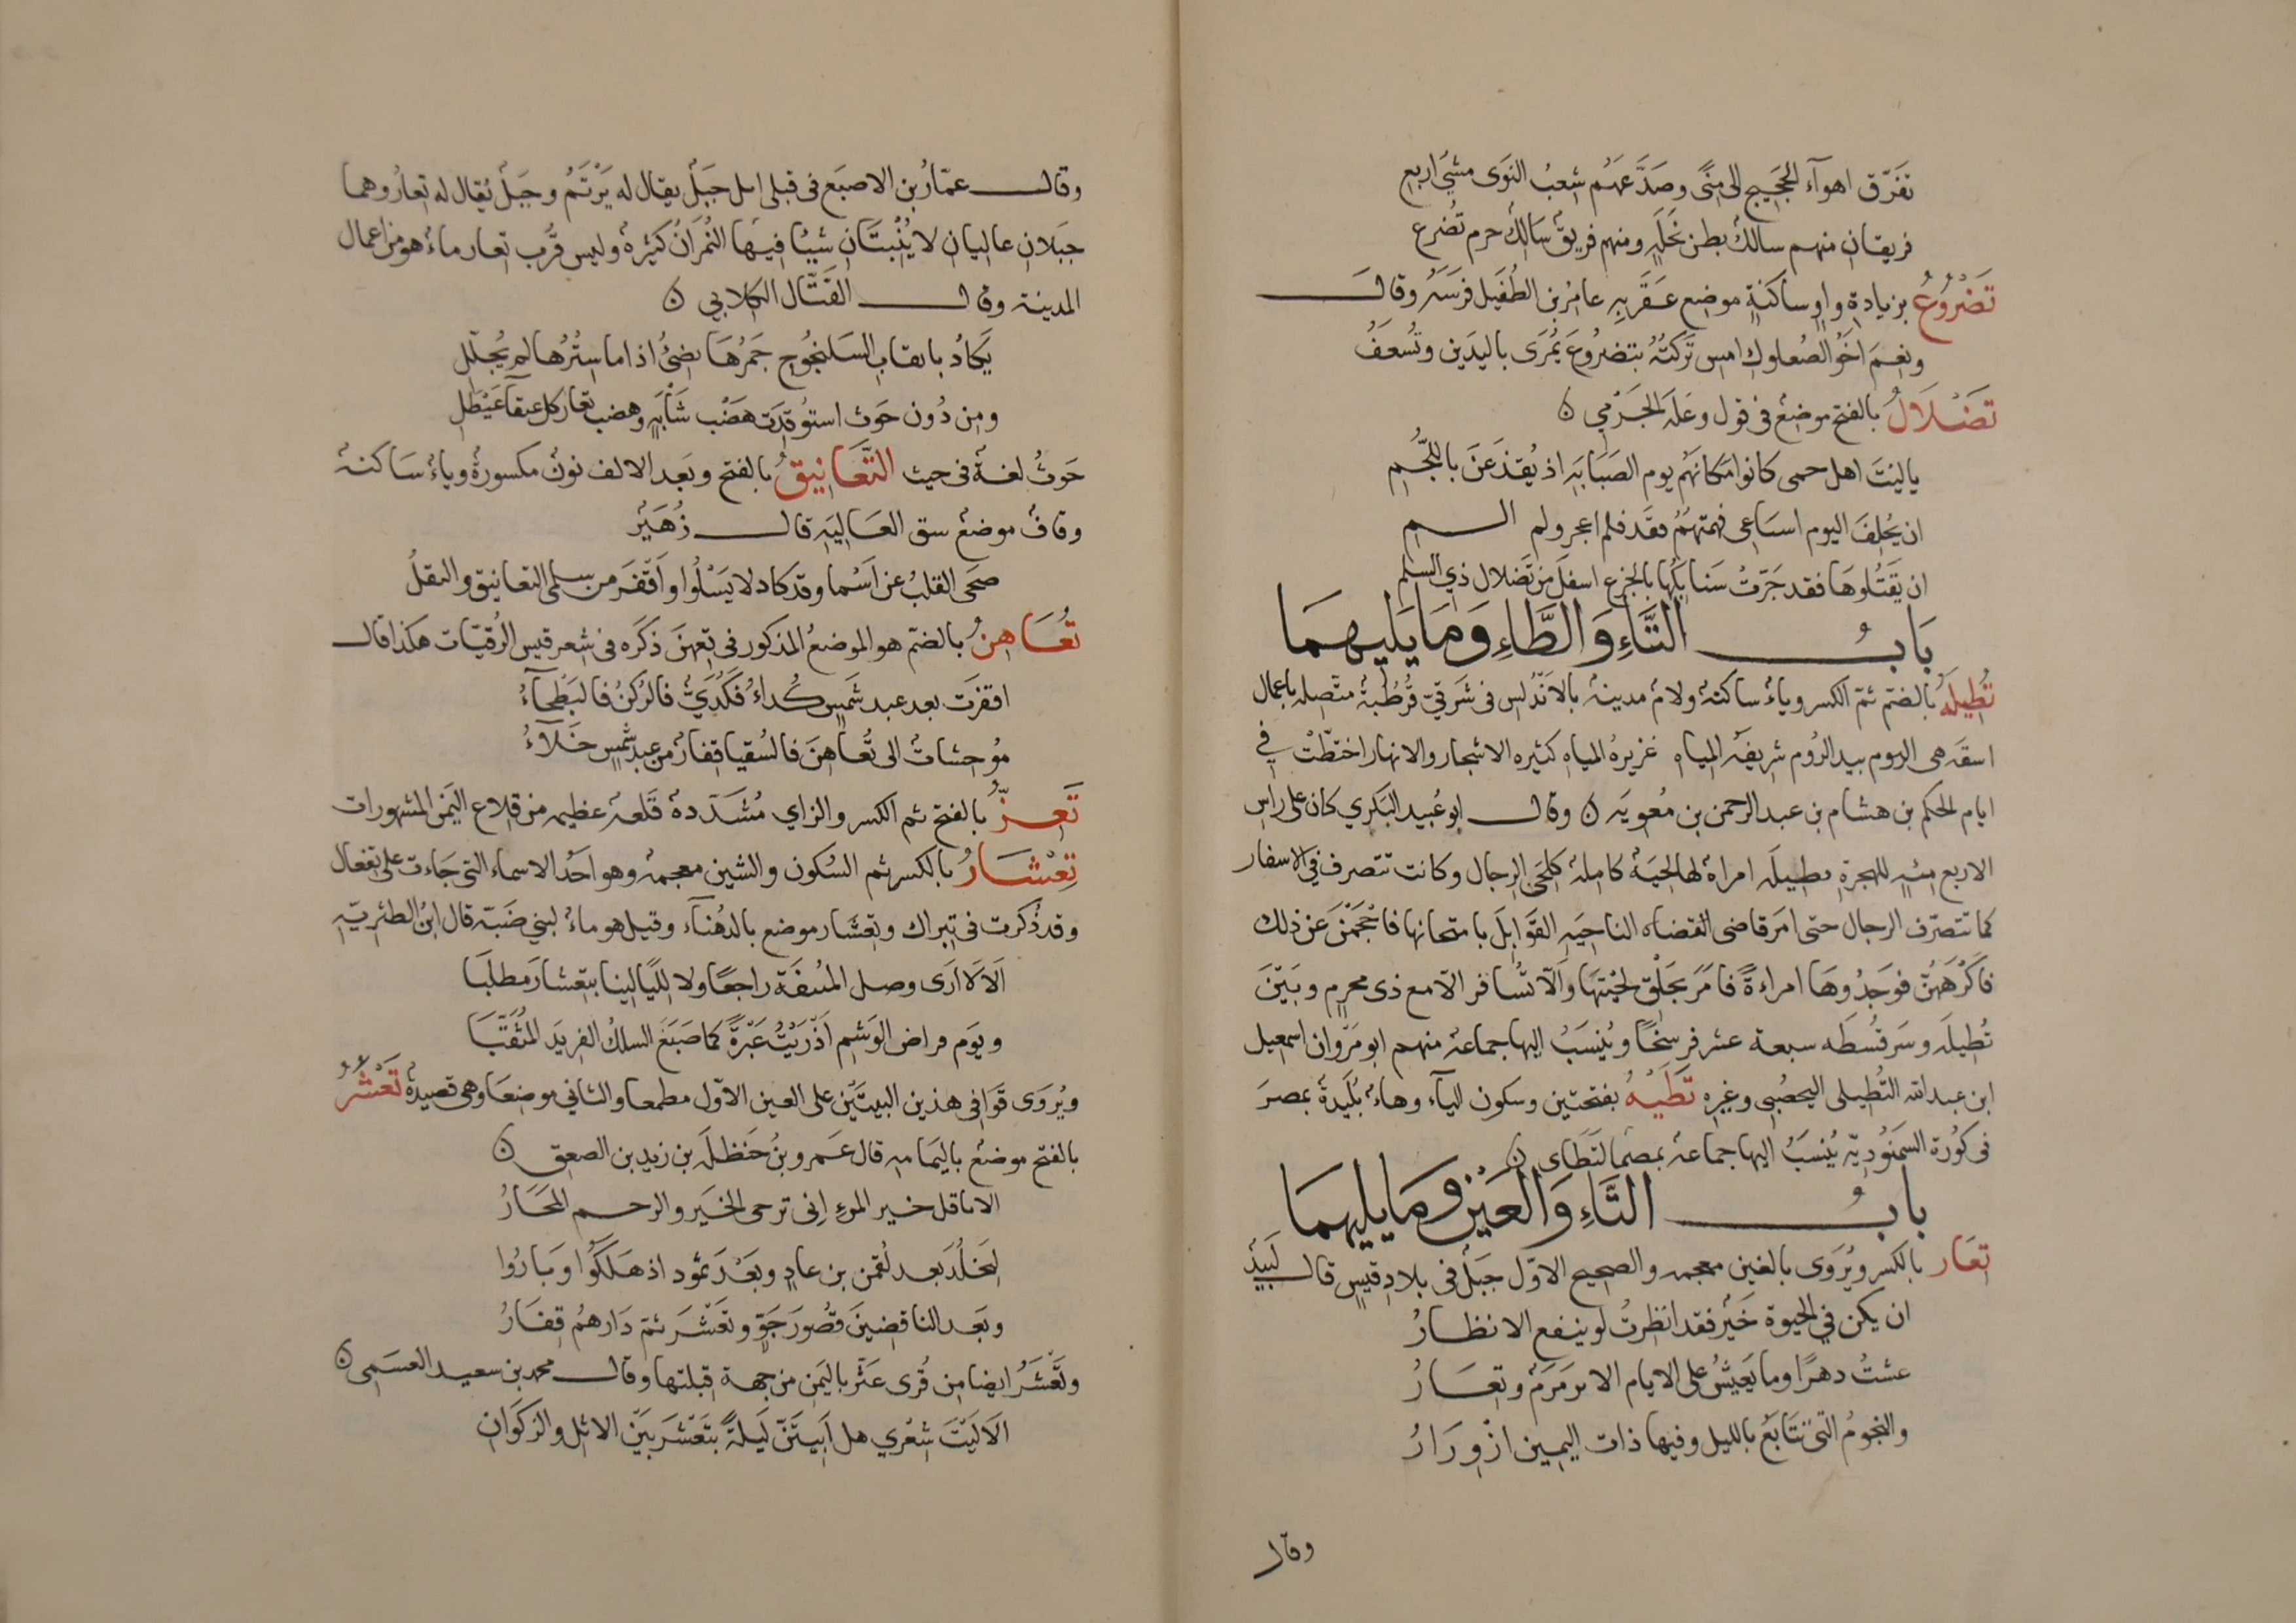 تفرّق اهوآء الحجيج الى منًى وصدّعهم شعبُ النوَى مشيَ اربع
فريقان منهم سالكٌ بطن نخلَةٍ ومنهم فريقٌ سَالكٌ حرم تضرع
تَضْرُوعُ بزيادة واوٍ ساكنةٍ موضع عَقَر بِهِ عامرُ بن الطُفَيل فرسَهُ وقال
ونعمَ اخوُ الصُعلوك امسِ تركتُهُ بتضرُوعَ يَمْرَى باليدَين وتُسعَفُ
تَضْلَالُ بالفتح موضعٌ فى قول وعلَة الجَرْمي ن
ياليتَ اهل حمى كانوا مكانهُم يوم الصَبَابَةِ اذ يُقذَعنَ باللُجُمِ
ان يُحلِفَ اليوم اسيَاعى فهمتهمُ فقد فلم اعجر ولم الــم
ان يقتُلوهَا فقد جَرّتْ سَنابكُها بالجزع اسفلَ من تَضلال ذي السلم
بَابُ التَّاءِ وَالطَّاءِ وَمَا يَلِيهِمَا
تُطِيلَةُ بالضم ثمّ الكسر وياءٌ ساكنةٌ ولامٌ مدينة بالاَندُلس فى شَرقيّ قُرطُبةَ متّصله باعمال
اسقه هى اليوم بيد الرُوم شريفةُ المياه غزيرة المياه كثيره الاشجار والانهار اختطّتْ في
ايام الحكم بن هشام بن عبد الرحمن بن مُعويَه ن وقال ابو عُبيد البَكري كان على راس
الاربع مئةٍ للهجرة بطيلَه امراة لها لحيَةٌ كاملة كلحَى الرجال وكانت تتصرف فى الاسفار
كما تتصرّف الرجال حتى امَر قاضى القضاه الناحيَةِ القَوَابِلَ بامتحانها فاَحجَمْنَ عن ذلك
فاَكْرَهَهُنَّ فوَجدُوهَا امراءَةً فاَمَرَ بحَلْق لحيتهَا وَاَلّا تُسَافر الّا مع ذى محرم وبَيْنَ
تُطِيلَه وسَرقُسطَه سبعة عشر فرسخًا ويُنسَبُ اليها جماعة منهم ابو مَرّوان اسمعيل
ابن عبد الله التُطِيلى اليحصُبى وغيره تَطَيْهُ بفتحتين وسكون اليآء وهاءٌ بُلَيدةٌ بمصرَ
فى كُورة السَمَنُّوديّة يُنسَبُ اليها جماعة بمصر التَطَاى ن
بابُ التَّاءِ وَالعَيْنِ وَمَا يليهمَا
تِعَار بالكسر ويُرَوى بالغين معجمه والصحيح الاوّل جبَلٌ فى بلاد قيسٍ قال لَبيدٌ
ان يكن في الحيوة خَيْرٌ فقد انظِرتُ لو ينفع الانظارُ
عشتُ دهرًا وما يَعيشُ على الايام الا يرمَرَمٌ وتعَارُ
والنجومُ التى تتَابَعُ بالليل وفيها ذات اليمين ازْوِرَارُ
وقال
وقال عمّارُ بن الاصبَع فى قبلى ابلى جبَلٌ يقال له يَرْثَمُ وجبَلٌ يُقال له تعارُ وهما
جبَلان عاليان لا يُنْبتَان شيئًا فيهَا النُمْرَانُ كثيرةٌ وليس قُرب تعار ماءٌ هو من اعمال
المدينة وقال القَتّال الكلابي ن
يَكادُ باتقاب اليَلنجُوج جَمرُهَا يضئُ اذا ما سِتُرهَا لم يُجلّلِ
ومِن دُون حَوث استوُقدَت هَضْب شَابَةٍ وهضب تعار كل عنقآء عَيْطَلِ
حَوثُ لغةٌ فى حيث التَّعَانِيقُ بالفتح وبَعد الالف نونٌ مكسورةٌ وياءٌ سَاكنة
وقافٌ موضعٌ بشق العَاليَةِ قال زُهَيْر
صحَى القلبُ عن اَسْما وقد كاد لا يَسْلُوا واَقْفَرَ من سلمى التعانيق والثقلُ
تُعَاهِنُ بالضمّ هو الموضعُ المذكور فى تعهنَ ذكرَه فى شعر قيس الرُقيّات هكذا قال
اقفرَت بعد عبد شَمسٍ كُداءُ فكُدَيٌّ فالركنُ فالبَطْحآءُ
مُوحشاتٌ الى تُعاهِنَ فالسُقيا قِفارٌ من عبد شمسٍ خَلآءُ
تَعِزُّ بالفتح ثم الكسر والزاي مُشدّدة قَلعةٌ عظيمه من قلاع اليمَن المشهورات
تِعْشَارُ بالكسر ثم السُكون والشين معجمة وهو احَدُ الاسماء التى جَاءت على تفعال
وقد ذُكرت فى تبراك وتِعشار موضع بالدهنآء وقيل هو ماءٌ لبني ضَبّة قال ابنُ الطثريّة
اَلا لا ارَى وصل المُسفّة راجعًا ولا لِلَيالينا بتعشارَ مطلَبَا
ويوَم فراض الوَشم اَذْرَيْتُ عَبْرةً كما صَبَغَ السلكُ الفريدَ المُثَقّبَا
ويُروَى قوَافى هذين البيتَيْن على العين الاوّل مطمعا والثاني موضعَا وهى قصيدةٌ تَعْشُرُ
بالفتح موضعٌ باليمَامه قال عَمرو بنُ حَنظلَة بن زيد بن الصعِق ن
الا ما قل خير المرءِ اِنى ترحى الخيَر والرحم المَحَارُ
لِيَخلُدَ بعد لُقمن بن عادٍ وبَعْدَ ثمُود اذ هَلَكُوا وبَارُوا
وبَعد الناقضينَ قصُورَ جَوٍّ وتَعْشرَ ثم دَارهمُ قِفَارُ
وتَعْشَرُ ايضا من قُرى عَثّر باليَمن من جهة قبلتها وقال محمد بن سعيد العسَمى ن
الَا لَيْتَ شِعْري هل اَبيتَنّ لَيلةً بتَعْشَر بيَن الاثل والركَوَان